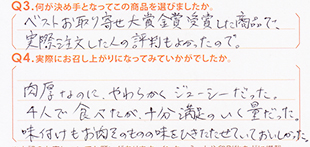 Q3.何が決め手となってこの商品を選びましたか。
ベストお取り寄せ大賞金賞受賞した商品で、
実際注文した人の評判もよかったので。
Q4.実際にお召し上がりになってみていかがでしたか。
肉厚なのに、やわらかく ジューシーだった。
4人で食べたが、十分満足のいく量だった。
味付けもお肉そのものの味をひきたたせていておいしかった。